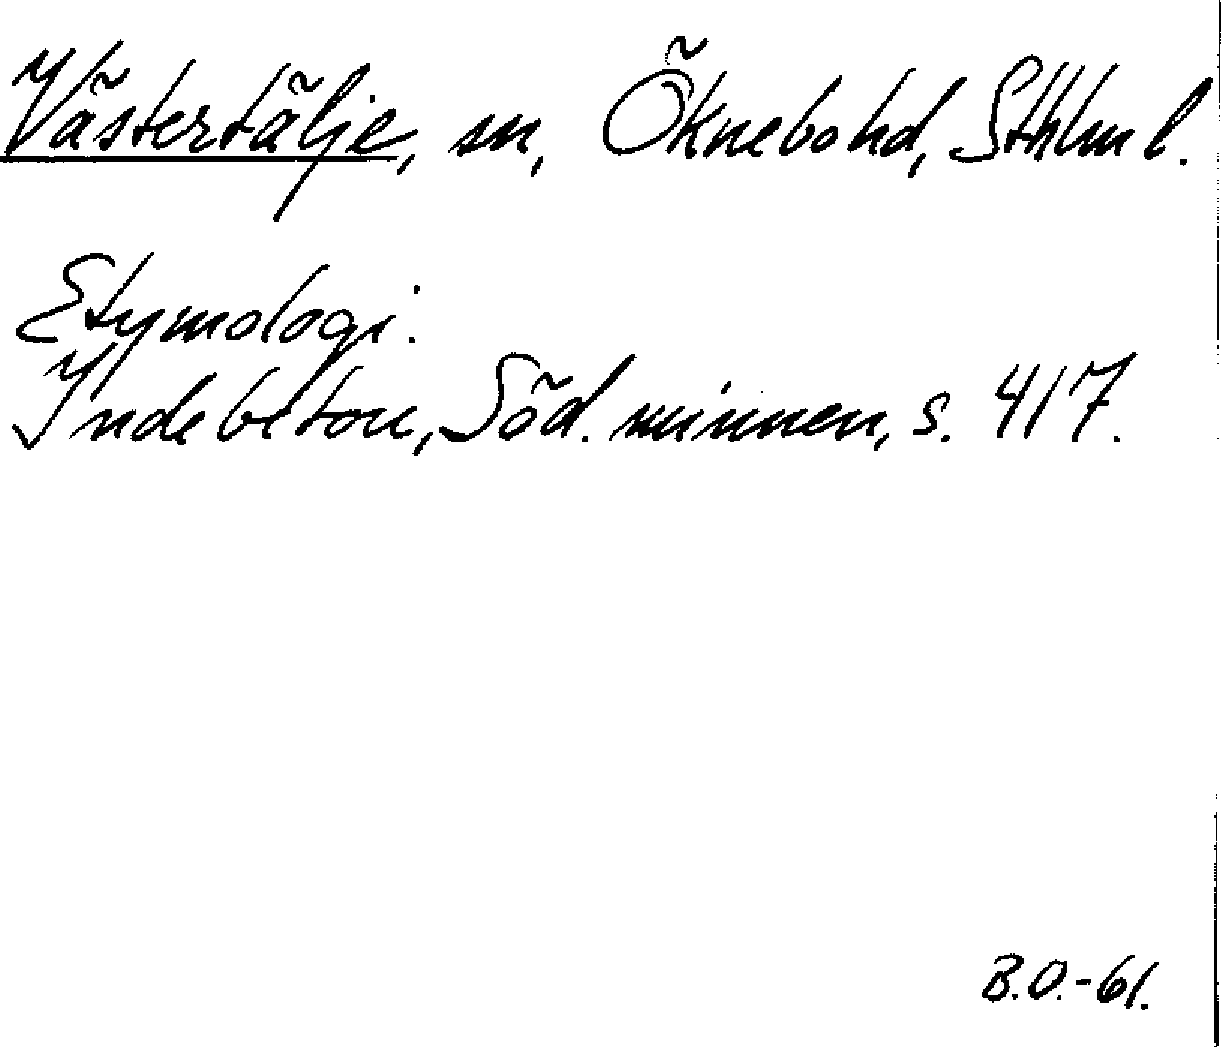 Västertälje, sn, Öknebo hd, Sthlm l.
Etymologi.
Indebetou, Söd. minnen, s. 417.
B.O.-61.